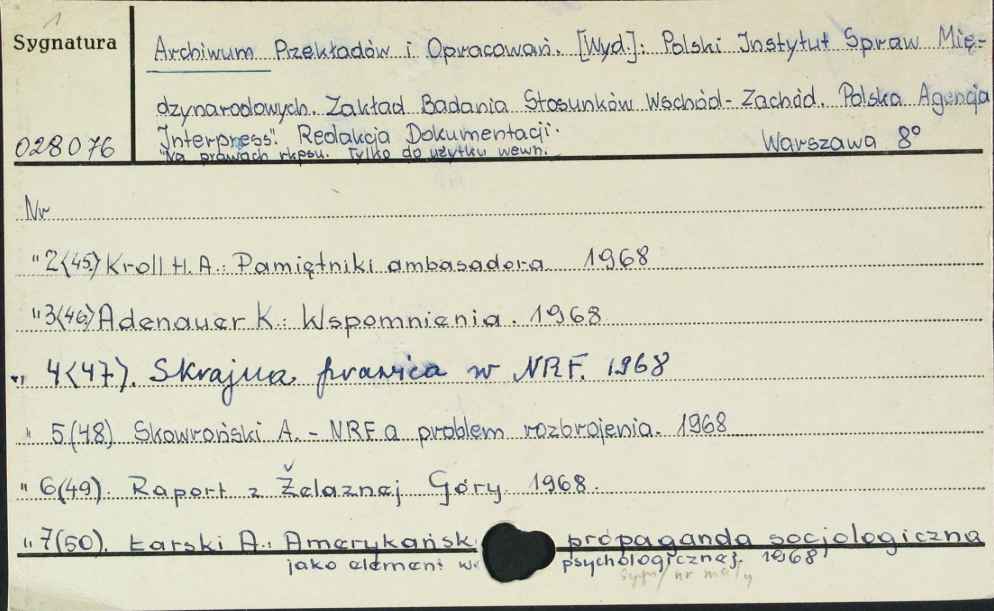 1
Sygnatura
Archiwum Przekładów i Opracowań. [Wyd.]: Polski Instytut Spraw Mię-
dzynarodowych. Zakład Badania Stosunków Wschód-Zachód. Polska Agencja
"Interpress". Redakcja Dokumentacji.
Warszawa 8°
028076
Na prawach rkpsu. Tylko do użytku wewn.
Nr
" 2(45) Kroll H. A.: Pamiętniki ambasadora 1968
" 3(46) Adenauer K.: Wspomnienia. 1968
" 4(47). Skrajna prawica w NRF. 1968
" 5(48) Skowroński A. - NRF a problem rozbrojenia. 1968
" 6(49). Raport z Želaznej Góry. 1968.
" 7(50). Łarski A.: Amerykańsk propaganda socjologiczna
jako element w psychologicznej. 1968